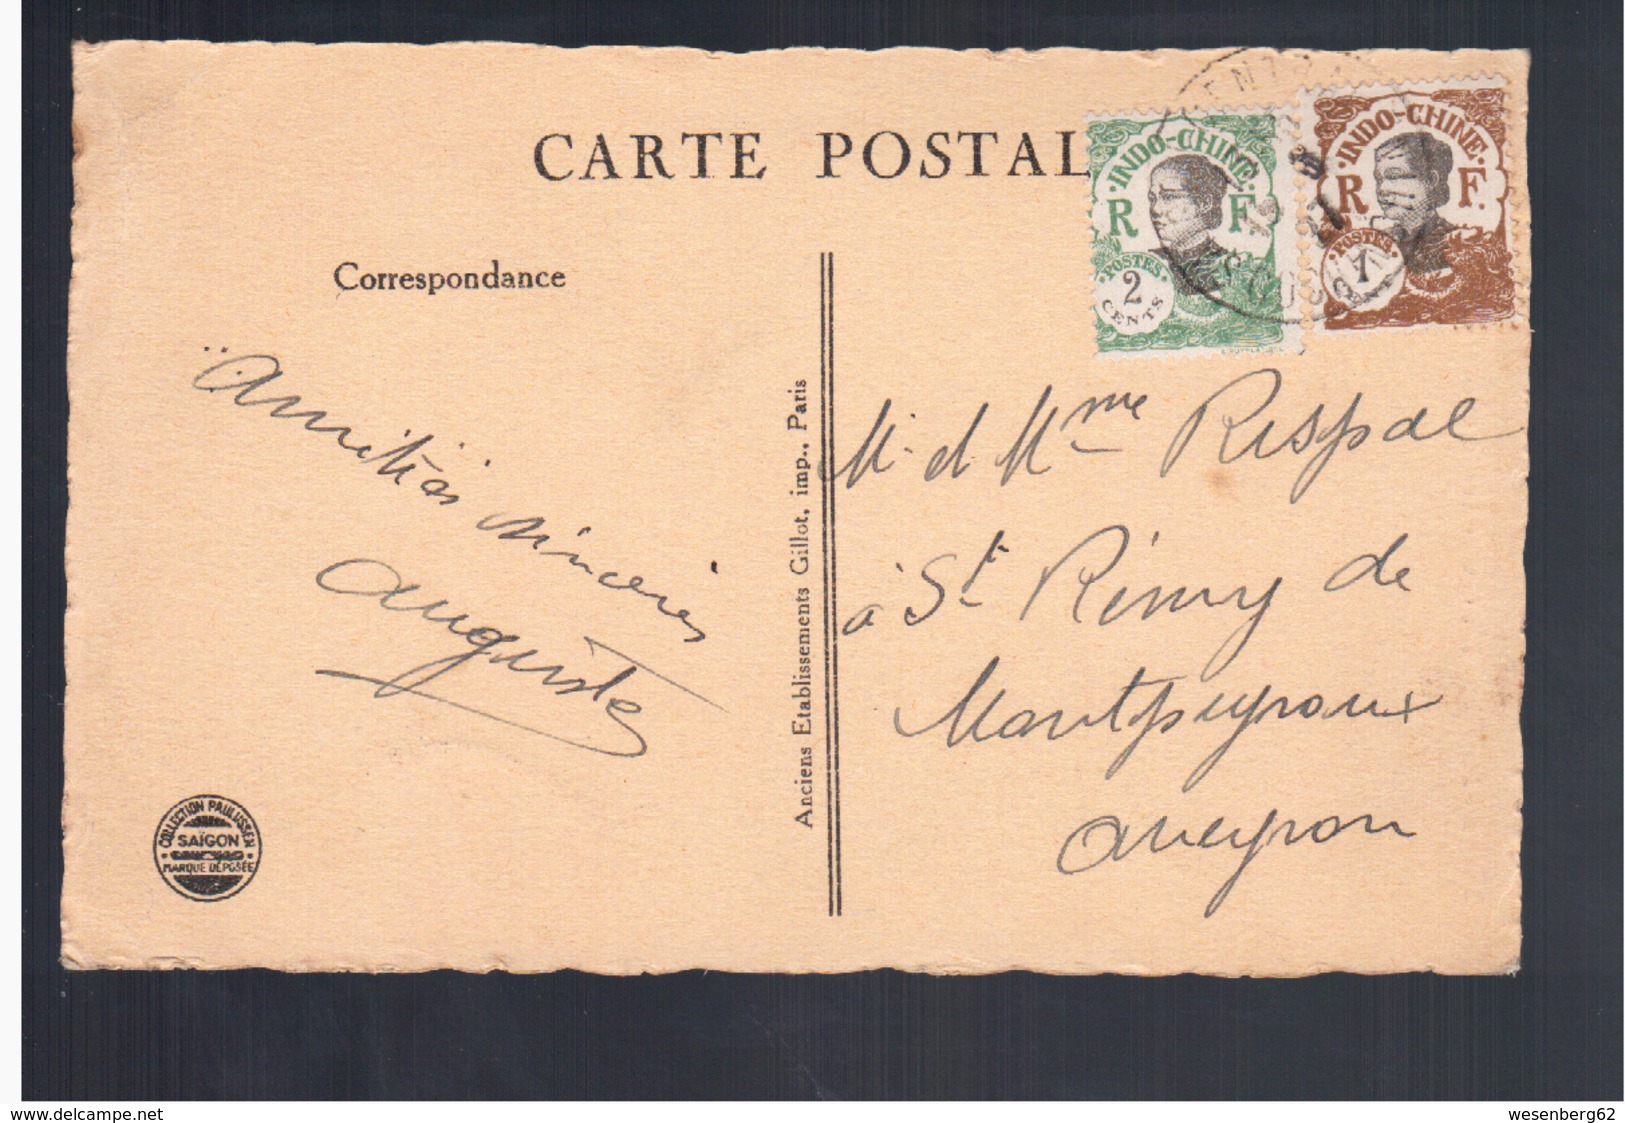 CARTE POSTAL
Correspondance
INDO-CHINE
R F.
POSTES
2
CENTS
INDO-CHINE
R F.
POSTES
1
CENT
Amitiés sincères
Auguste
M. et Mme Rispal
à St Rémy de
Montpeyroux
Aveyron
Anciens Etablissements Gillot, imp., Paris
COLLECTION PAULUSSEN
SAÏGON
MARQUE DÉPOSÉE
www.delcampe.net
wesenberg62